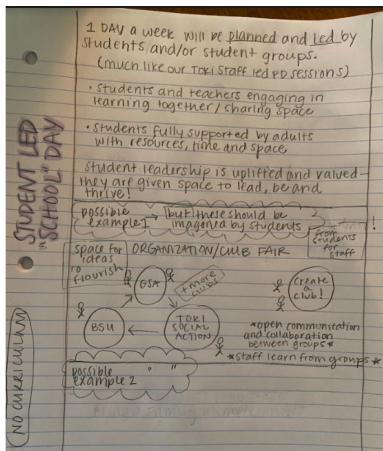 1 DAY a week will be planned and led by
students and/or student groups.
(much like our TOKI Staff led PD sessions)
• students and teachers engaging in
learning together/sharing space
• students fully supported by adults
with resources, time and space
student leadership is uplifted and valued -
they are given space to lead, be and
thrive!
STUDENT LED
"SCHOOL" DAY
NO CURRICULUM
possible
example 1 → (but these should be
imagined by students
from students
for
staff
!
space for
ideas
to
flourish
ORGANIZATION/CLUB FAIR
GSA
+ more
clubs
Create
a
club!
BSU
TOKI
SOCIAL
ACTION
*open communication
and collaboration
between groups*
*staff learn from groups*
possible " "
example 2